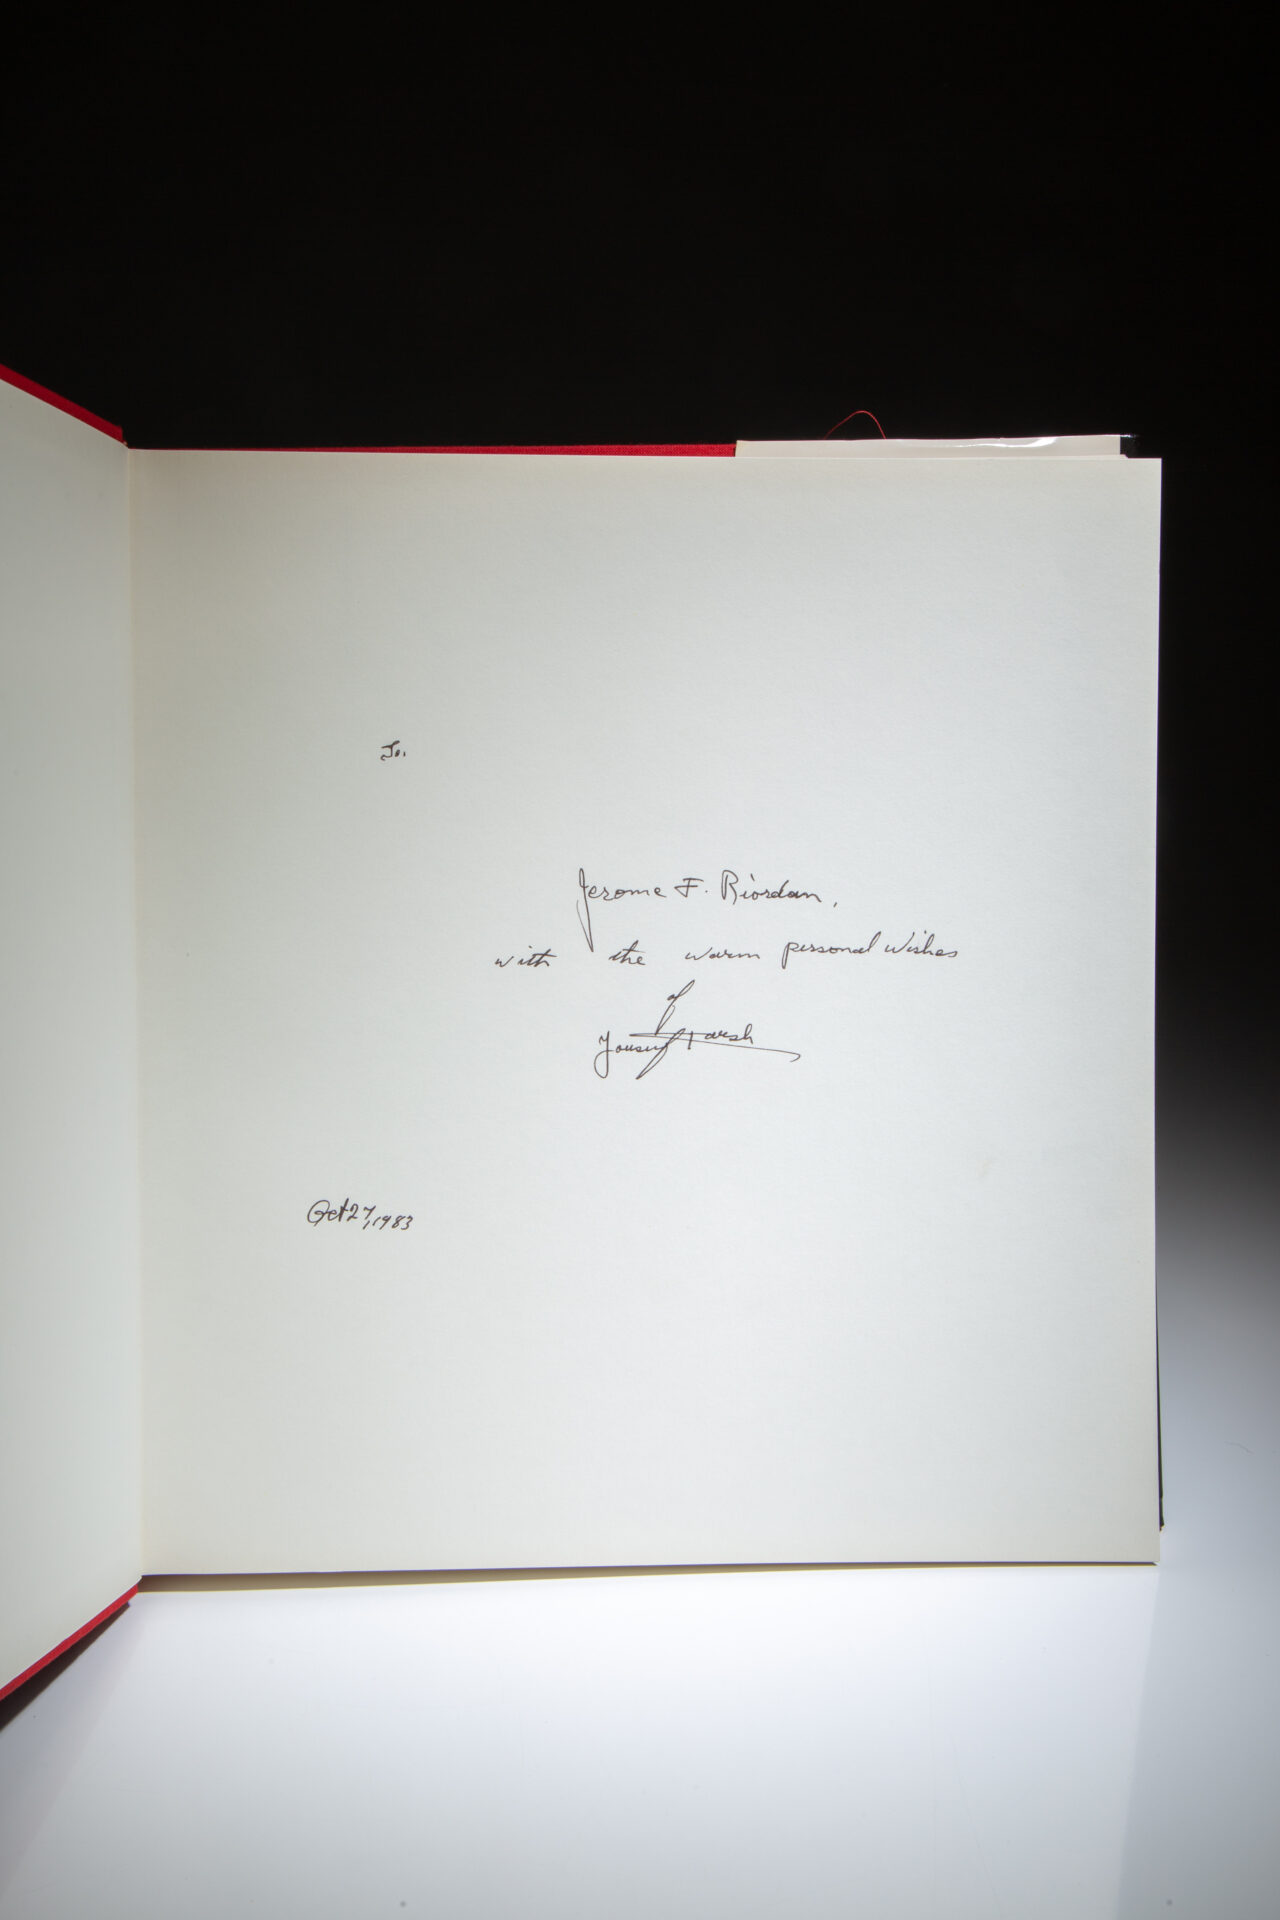 To.
Jerome F. Riordan,
with the warm personal wishes
of
Yousuf Karsh
Oct 27, 1983